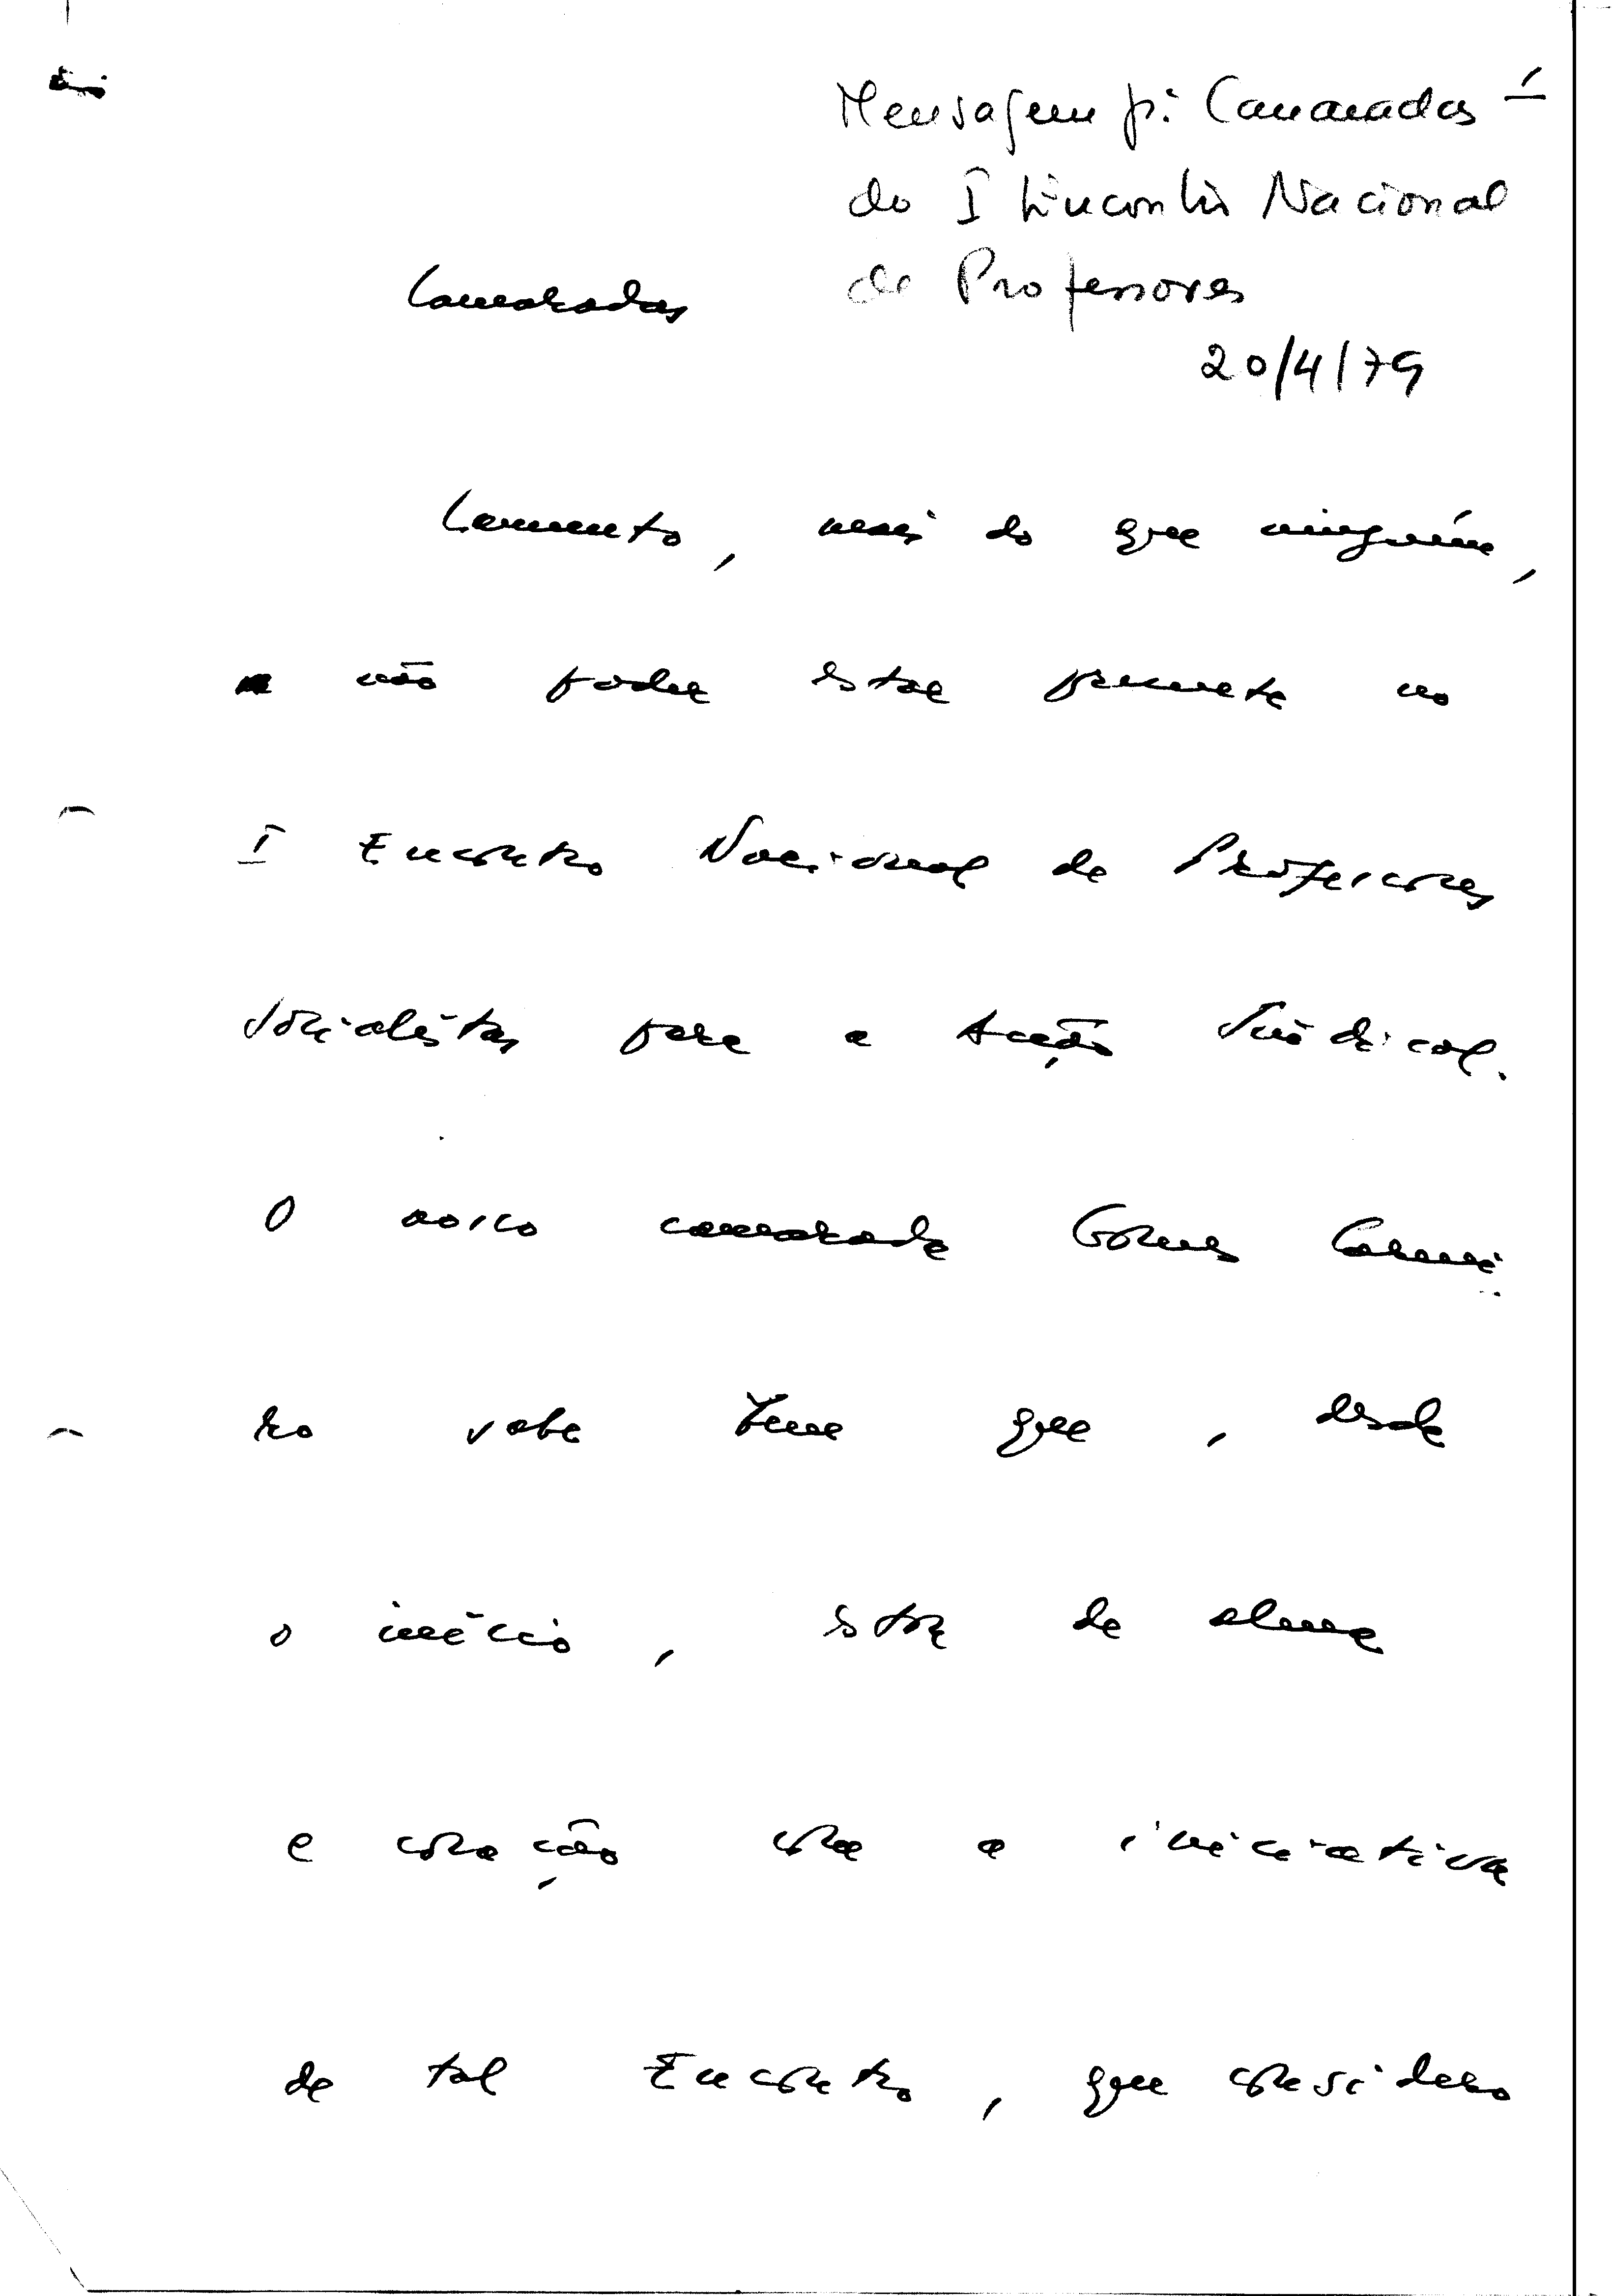 Mensagem p: Camaradas
do I Encontro Nacional
de Professores
20/4/79
Camaradas
Lamento, mais do que ninguém,
não poder estar presente no
I Encontro Nacional de Professores
Socialistas para a Acção Sindical.
O nosso camarada Gomes Carnei
ro sabe bem que, desde
o início, estou de alma
e coração com a iniciativa
de tal Encontro, que considero